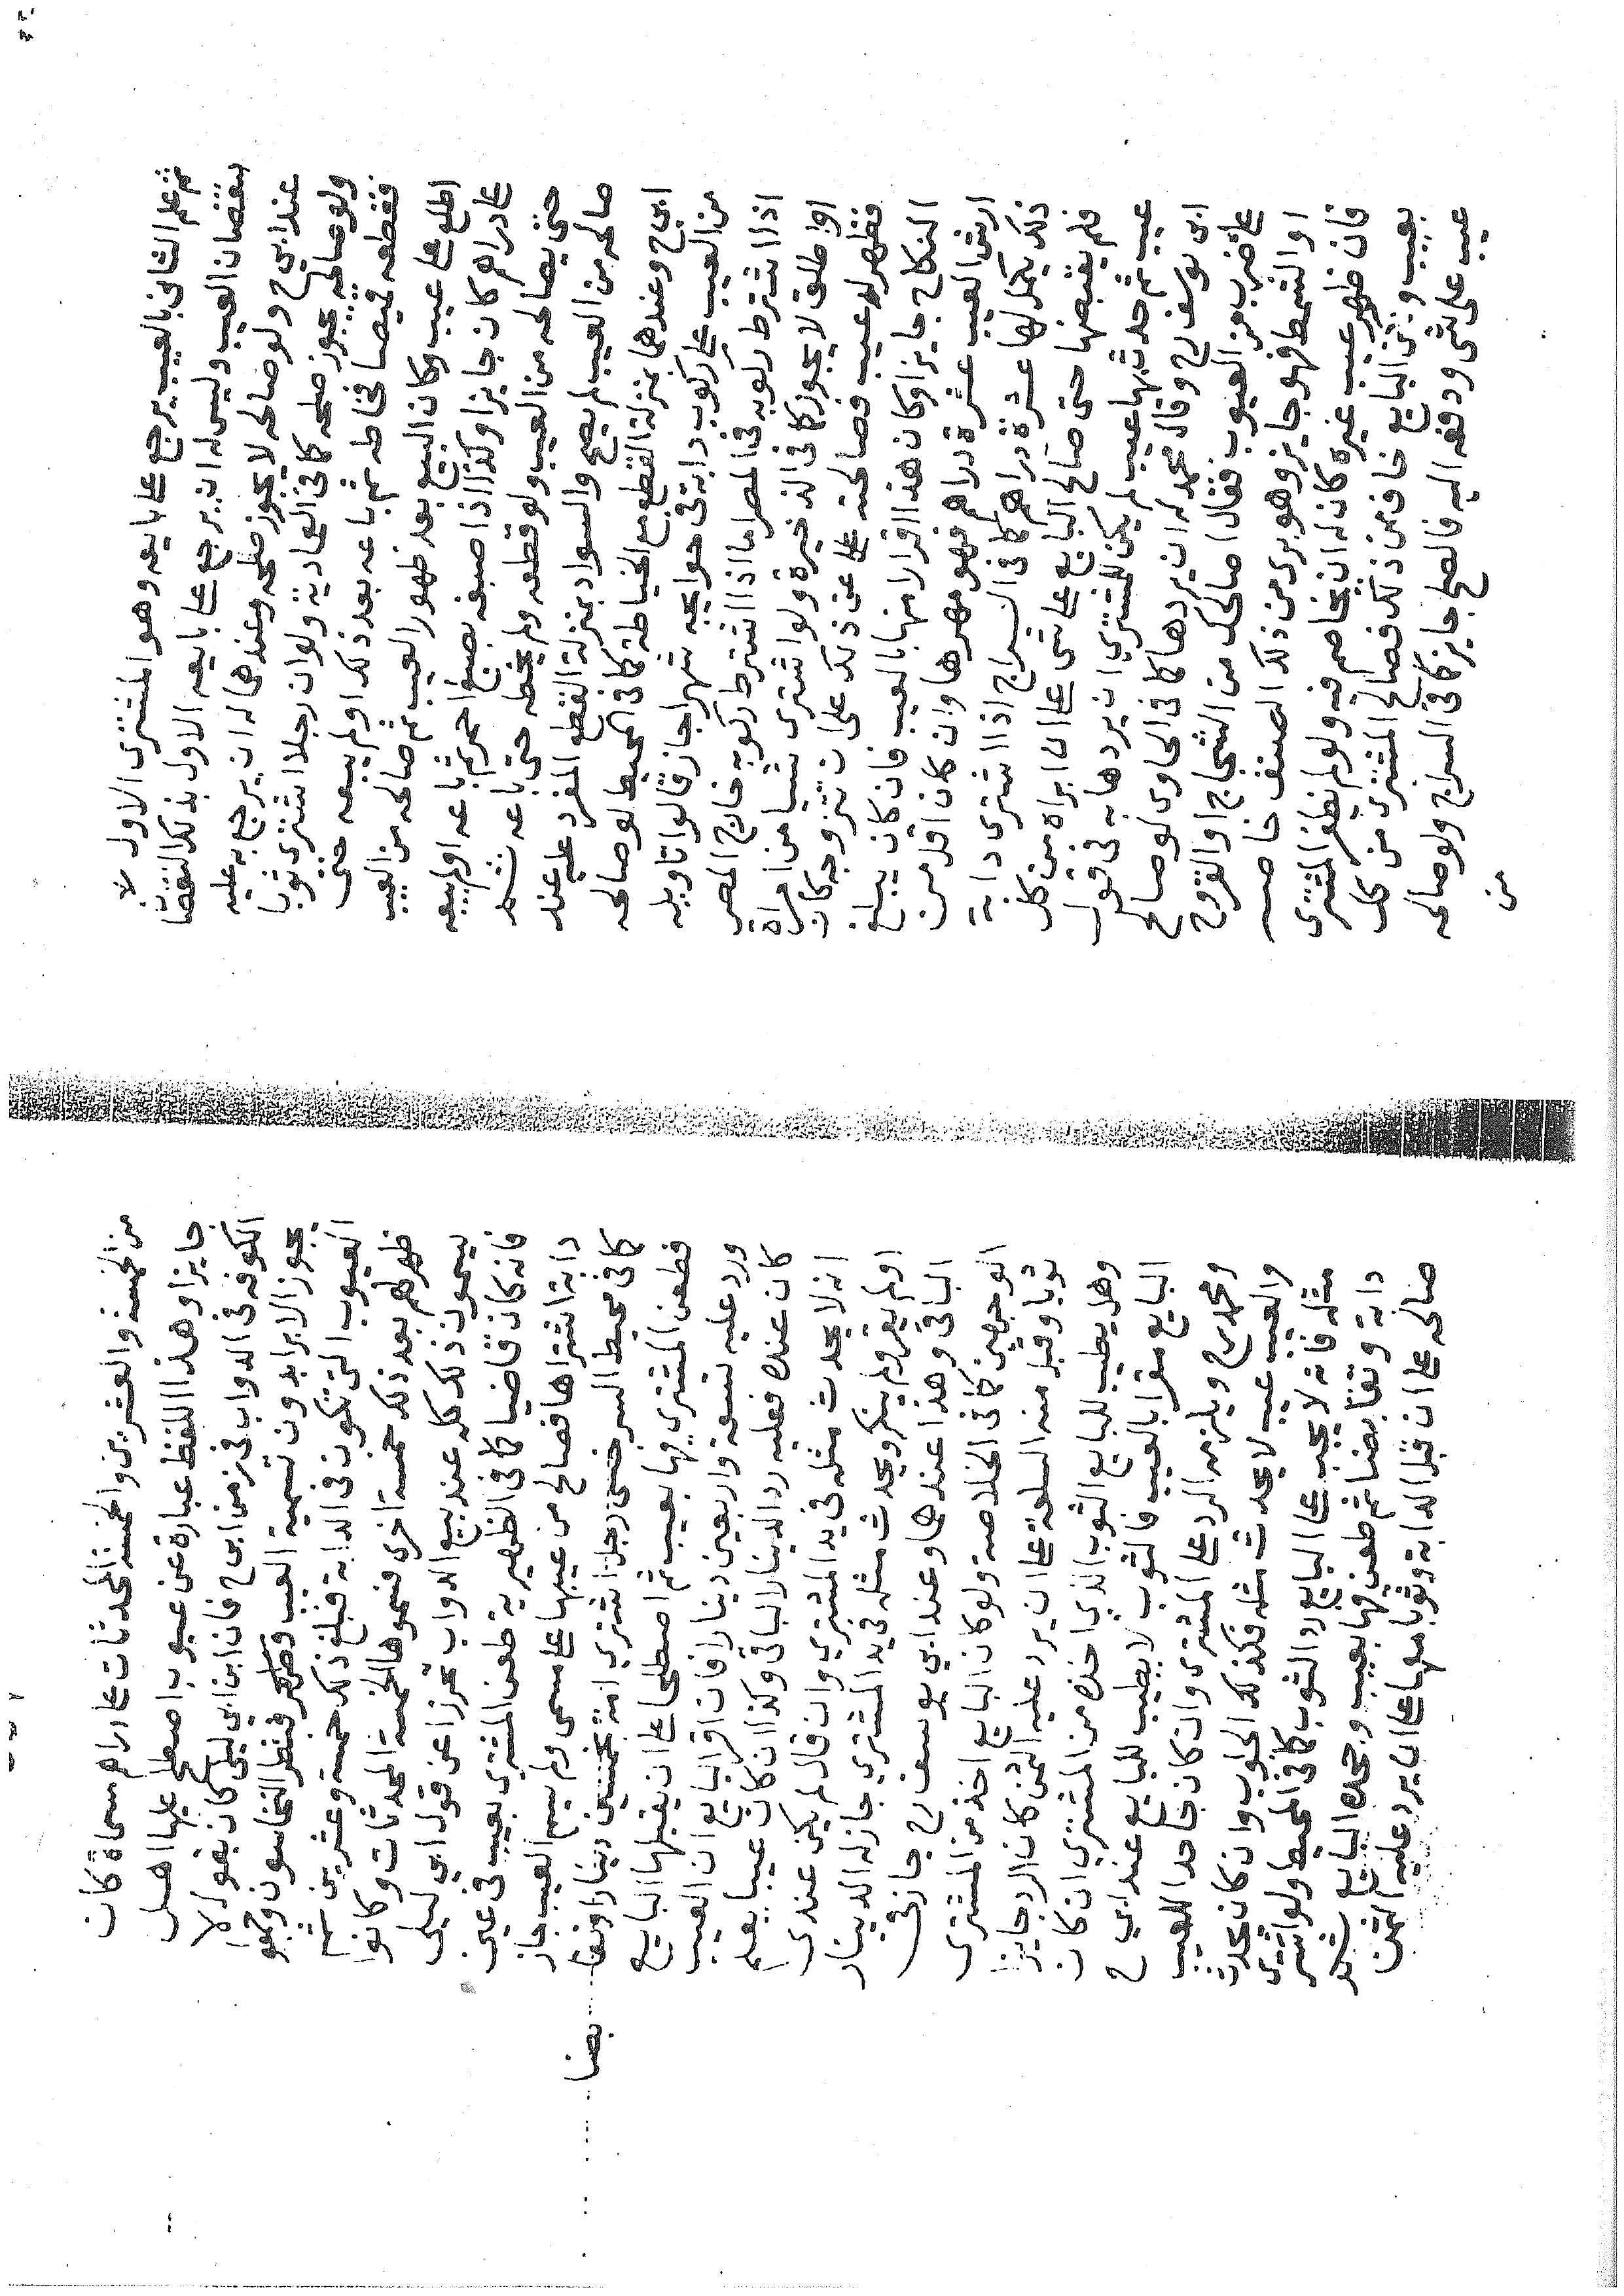 ثم علم الثانى بالعيب يرجع على بايعه وهو المشترى الاول لا
بنقصان العيب وليس له ان يرجع على بايعه الاول بذلك النقصان
عند ابى ح ولو صالحه لا يجوز صلحه وعندهما له ان يرجع به عليه
ولو صالحه يجوز صلحه كما فى العمادية ولو ان رجلا اشترى ثوبا
فقطعه قميصا فخاطه ثم باعه بعد ذلك او لم يبعه حتى
اطلع على عيب وكان البيع بعد ظهور العيب ثم صالحه من العيب
على دراهم كان جايزا وكذا اذا صبغه بصبغ احمر ثم باعه او لم يبعه
حتى يصالحه من العيب ولو قطعه ولم يخطه حتى باعه ثم
صالحه من العيب لم يصح والسواد بمنزلة القطع المفرد عليه عند
ابى ح وعندهما بمنزلة القطع مع الخياطة كما فى المحيط لو صالحه
من العيب على ركوب دابة فى حوايجه شهرا جاز قالوا تاويله
اذا اشترط ركوبه فى المصر اما اذا اشترط ركوبه خارج المصر
او اطلق لا يجوز كما فى الذخيرة ولو اشترى شيا من امراة
فظهر له عيب فصالحته على عن ذلك على ان تتزوجه كان
النكاح جايزا وكان هذا اقرارا منها بالعيب فان كان يبلغ
ارش العيب عشرة دراهم فهو مهرها وان كان اقل من
ذلك يكمل لها عشرة دراهم كما فى السراج اذا اشترى دابة
فلم يقبضها حتى صالح البايع على شى على ان ابراه من كل
عيب ثم حدث بها عيب لم يكن للمشترى ان يردها به فى قول
ابى يوسف رح وقال محمد له ان يردها كما فى الحاوى لو صالح
على ضرب من العيوب فقال اصالحك من الشجاج او القروح
او الشمط فهو جايز وهو برى من ذلك الصنف خاصة
فان ظهر عيب غيره كان له ان يخاصم فيه ولو لم يظفر المشترى
بعيب البايع خاف من ذلك فصالح المشترى من كل
عيب على شى ودفعه اليه فالصلح جايز كما فى السراج ولو صالحه
من
من الخمسة والعشرين والخمسة المحدثات على دراهم مسماة كان
جايزا وهذا اللفظ عبارة عن عيوب اصطلح عليها اهل
الكوفة فى الدواب فى زمن ابى ح فان ابن ابى ليلى كان يقول لا
يجوز الابرا بدون تسمية العيب فنظر النخاسون وجمعوا
العيوب التى تكون فى الدابة فبلغ ذلك خمسة وعشرين ثم
ظهر لهم بعد ذلك خمسة اخرى فسموها الخمسة المحدثات وكانوا
يسمون ذلك كله عند بيع الدواب تحرزا عن قول ابى ليلى
فانه كان قاضيا كما فى الظهيرية طعن المشترى بعيب فى عين
دابة اشتراها فصالح من عيبها على مسمى ولم يسم العيب جاز
كما فى محيط السرخسى رجل اشترى امة بخمسين دينارا وتقا
بضا
فطعن المشترى بها بعيب ثم اصطلحا على ان يقبلها البايع
ورد عليه تسعة واربعين دينارا فان اقر البايع ان العيب
كان عنده فعليه رد الدينار الباقى وكذا ان كان عيبا يعلم
انه لا يحدث مثله فى يد المشترى وان قال لم يكن عندى
او لم يقر ولم ينكر ويحدث مثله فى يد المشترى جاز له الدينار
الباقى وهذا عندهما وعند ابى يوسف رح جاز فى
الوجهين كما فى الخلاصة ولو كان البايع اخذ من المشترى
ثوبا وقبل منه السلعة على ان يرد عليه الثمن كان الرد جايزا
وهل يطيب للبايع الثوب الذى اخذه من المشترى ان كان
البايع مقرا بالعيب فالثوب لا يطيب للبايع عند ابى ح
ومحمد رح ويلزمه الرد على المشترى وان كان جاحدا للعيب
والعيب عيب لا يحدث مثله فكذلك الجواب وان كان يحدث
مثله فانه لا يجب على البايع رد الثوب كما فى المحيط ولو اشترى
دابة وتقابضا ثم طعن فيها بعيب وجحده البايع ثم
صالحه على ان قبل الدابة وثوبا معها على ان يرد عليه الثمن